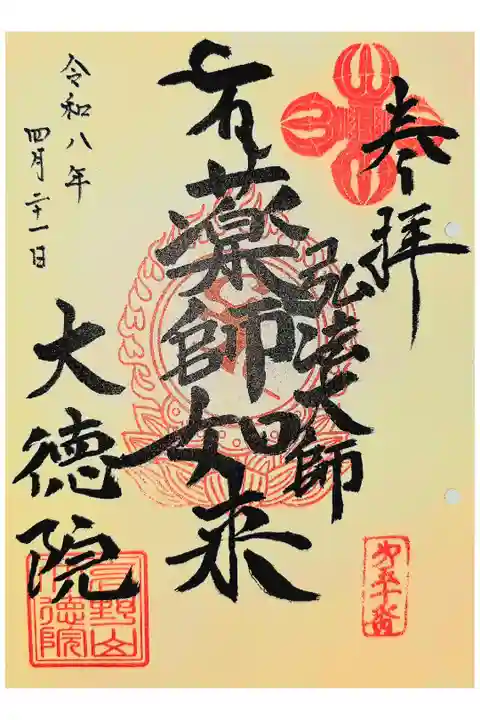 奉拝
弘法大師
薬師如来
令和八年
四月二十一日
大徳院
㐧五十番
高野山
大徳院